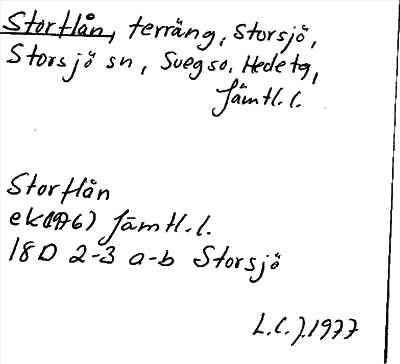 Storflån, terräng, Storsjö,
Storsjö sn, Svegs o. Hede tg,
Jämtl. l.
Storflån
ek (1976) Jämtl. l.
18D 2-3 a-b Storsjö
L.C.J. 1977